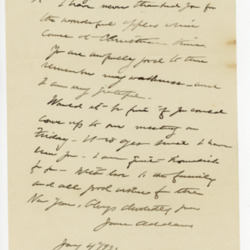 I have never thanked you for
the wonderful apples which
came at Christmas time
You are awfully good to thus
remember my weakness and
I am very grateful.
Would it be possible if you could
come up to our meeting on
Friday - It is ages since I have
seen you - I am quite homesick
for - With love to the family
and all good wishes for the
New Year, Always devotedly yours
Jane Addams
Jany 4"